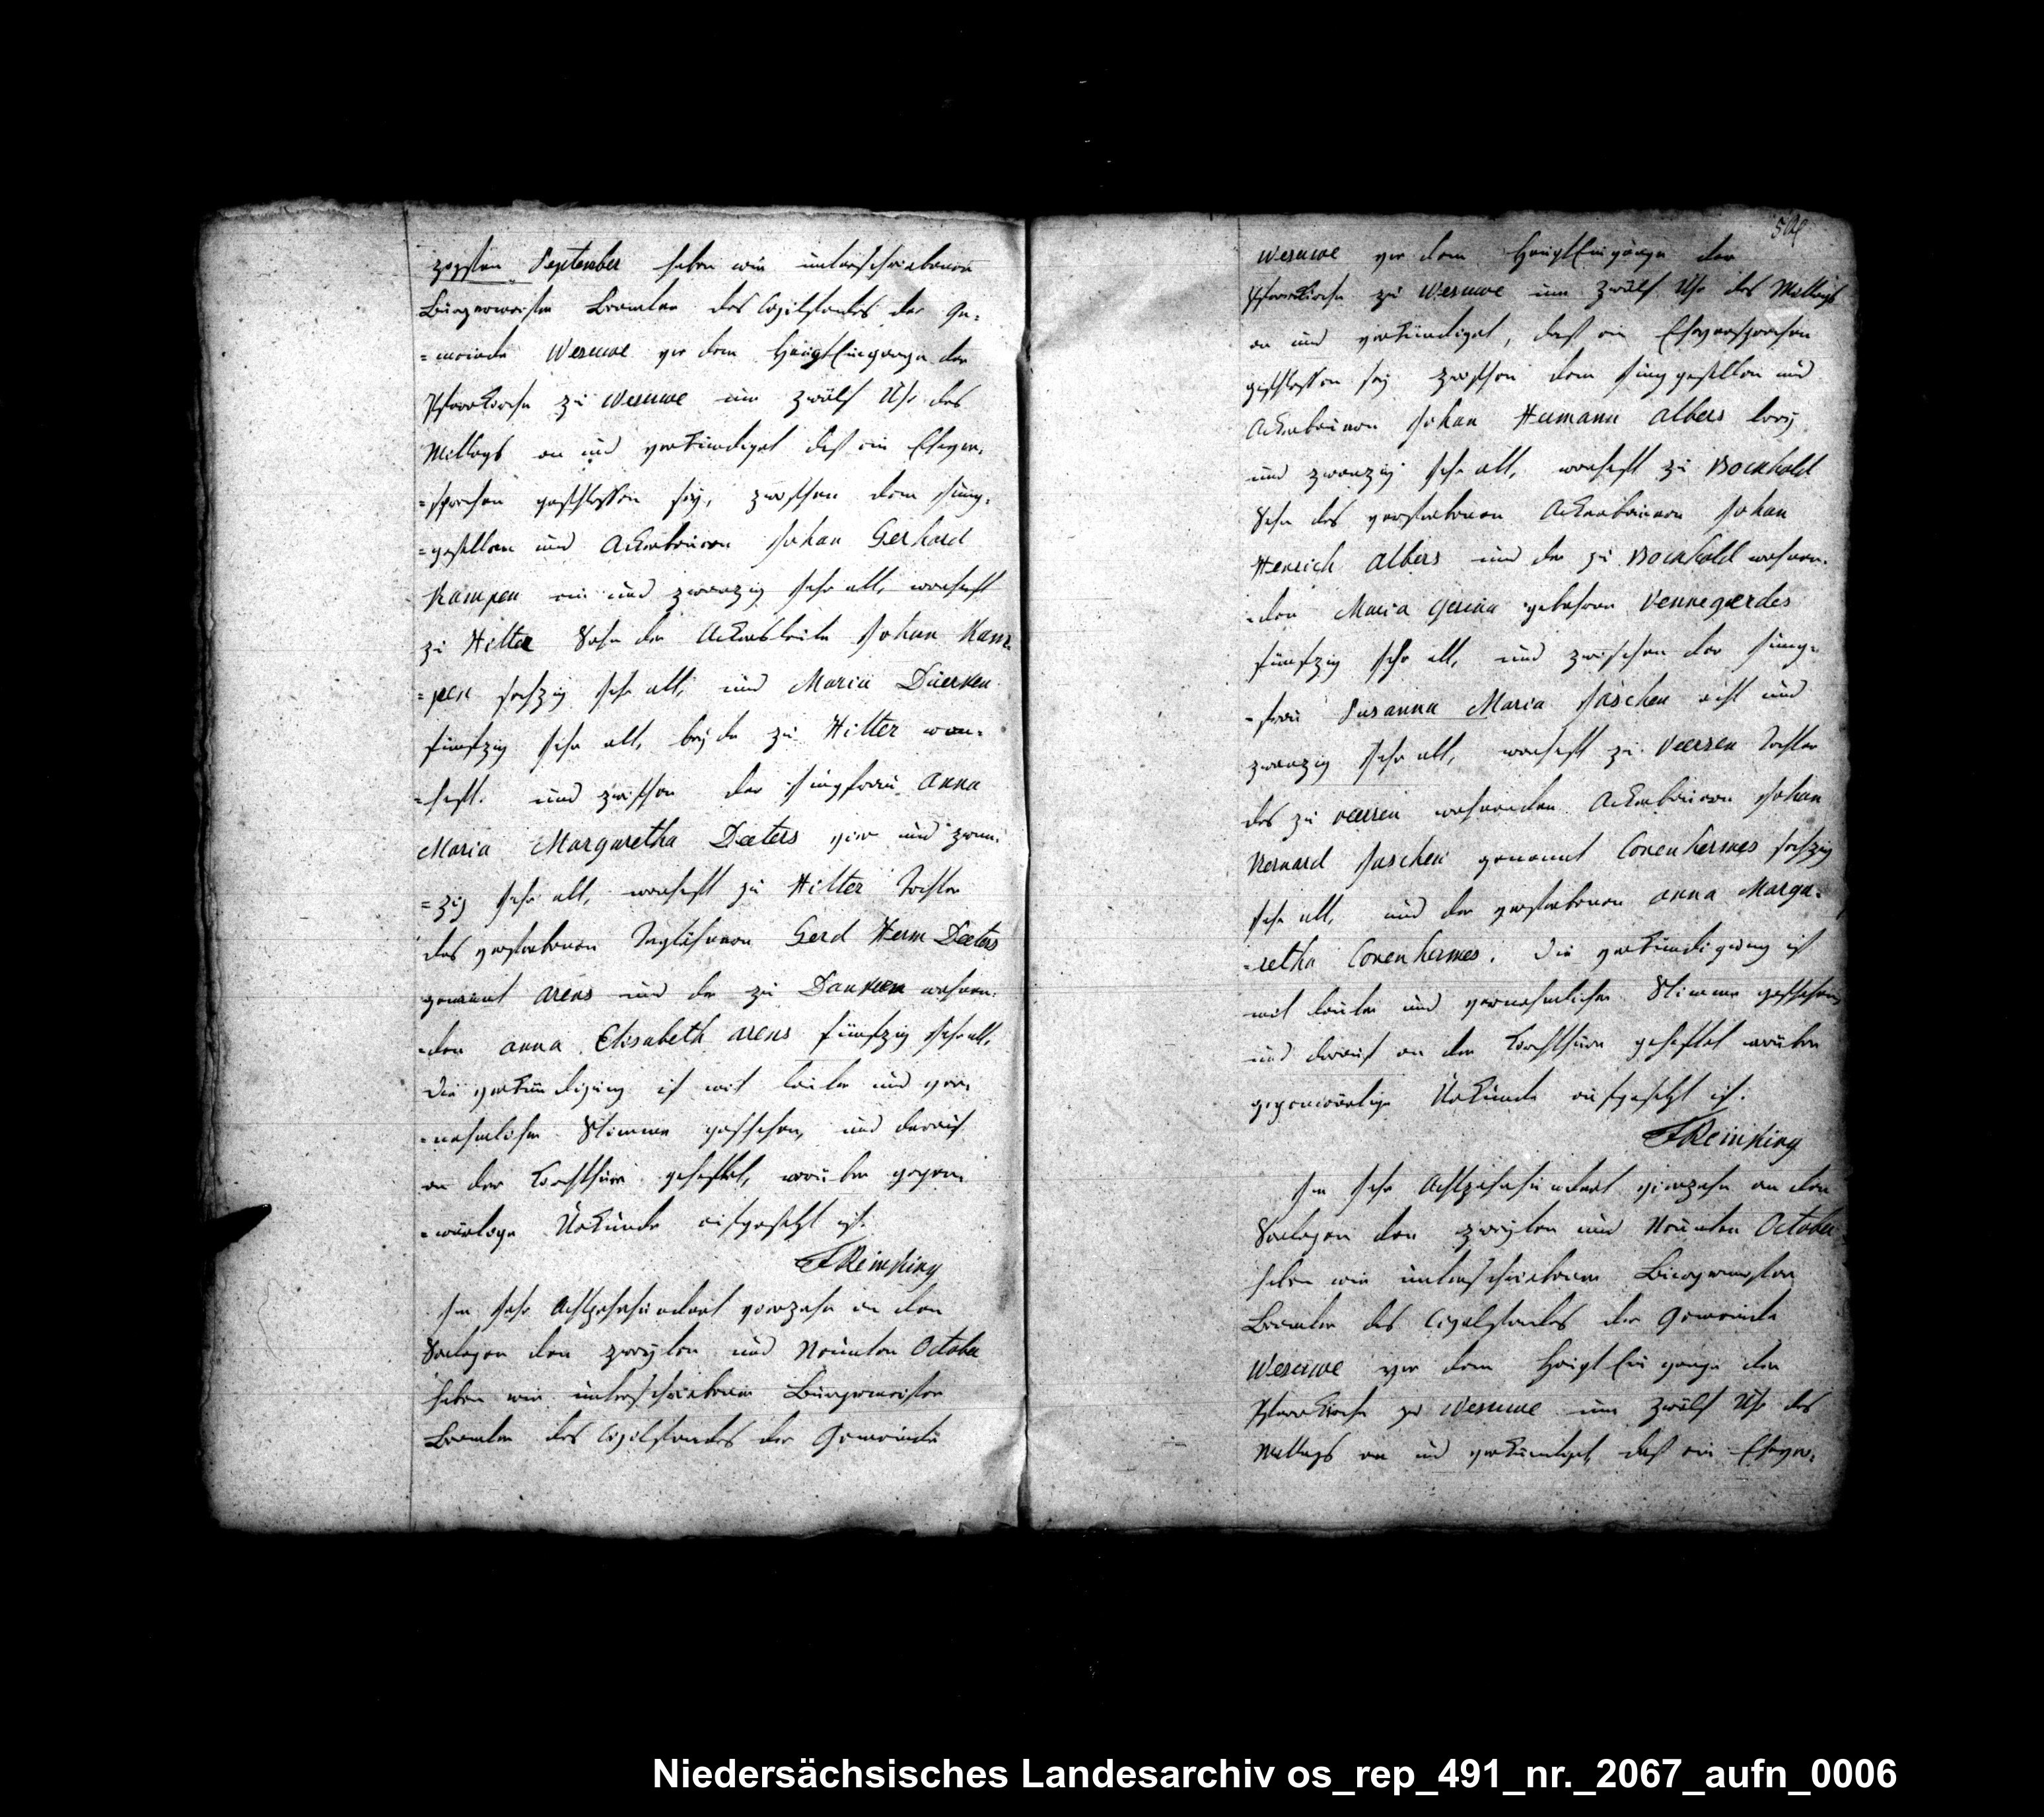 zigsten September haben wir unterschriebener
Bürgermeister Beamter des Civilstandes der Ge-
=meinde Wesuwe vor dem Haupt Eingange der
Pfarrkirche zu Wesuwe um zwölf Uhr des
Mittags an und verkündiget daß ein Ehever-
=sprechen geschlossen sey, zwischen dem Jung-
=gesellen und Ackerbauern Johan Gerhard
Kampen ein und zwanzig Jahr alt, wonhaft
zu Hilter Sohn der Ackersleute Johan Kam-
=pen sechzig Jahr alt, und Maria Duerken
fünfzig Jahr alt, beyde zu Hilter won-
=haft. und zwischen der Jungfrau Anna
Maria Margaretha Deeters vier und zwan-
=zig Jahr alt, wonhaft zu Hilter Tochter
des verstorbenen Taglöhneren Gerd Herm Deeters
genannt Arens und der zu Dankern wohnen-
-den Anna Elisabeth Arens fünfzig Jahr alt.
Die verkündigung ist mit lauter und ver-
-nehmlicher Stimme geschehen, und darauf
an der Kirchthüre geheftet, worüber gegen-
-wärtige Urkunde aufgesetzt ist.
FReinking
Im Jahr Achtzehnhundert vierzehn an den
Sontagen den zweyten und Neunten October
haben wir unterschriebener Bürgermeister
Beamter des Civilstandes der Gemeinde
504
Wesuwe vor dem Haupt Eingange der
Pfarrkirche zu Wesuwe um zwölf Uhr des Mittags
an und verkündiget, daß ein Eheversprechen
geschlossen sey zwischen dem Junggesellen und
Ackerbauren Johan Hermann Albers drey
und zwanzig Jahr alt, wonhaft zu Bockhold
Sohn des verstorbenen Ackerbauren Johan
Henrich Albers und der zu Bockhold wohnen-
-den Maria Gesina gebohren Vennegerdes
fünfzig Jahr alt, und zwischen der Jung-
-frau Susanna Maria Jaschen acht und
zwanzig Jahr alt, wonhaft zu Veersen Tochter
des zu Veersen wohnenden Ackerbauren Johan
Bernard Jaschen genannt Covenhermes sechzig
Jahr alt, und der verstorbenen Anna Marga-
-retha Covenhermes. Die verkündigung ist
mit lauter und vernehmlicher Stimme geschehen
und darauf an der Kirchthüre geheftet worüber
gegenwärtige Urkunde aufgesetzt ist.
FReinking
Im Jahr Achtzehnhundert vierzehn an den
Sontagen den zweyten und Neunten October
haben wir unterschriebener Bürgermeister
Beamter des Civilstandes der Gemeinde
Wesuwe vor dem Haupt Eingange der
Pfarrkirche zu Wesuwe um zwölf Uhr des
Mittags an und verkündiget, daß ein Ehever-
Niedersächsisches Landesarchiv os_rep_491_nr._2067_aufn_0006